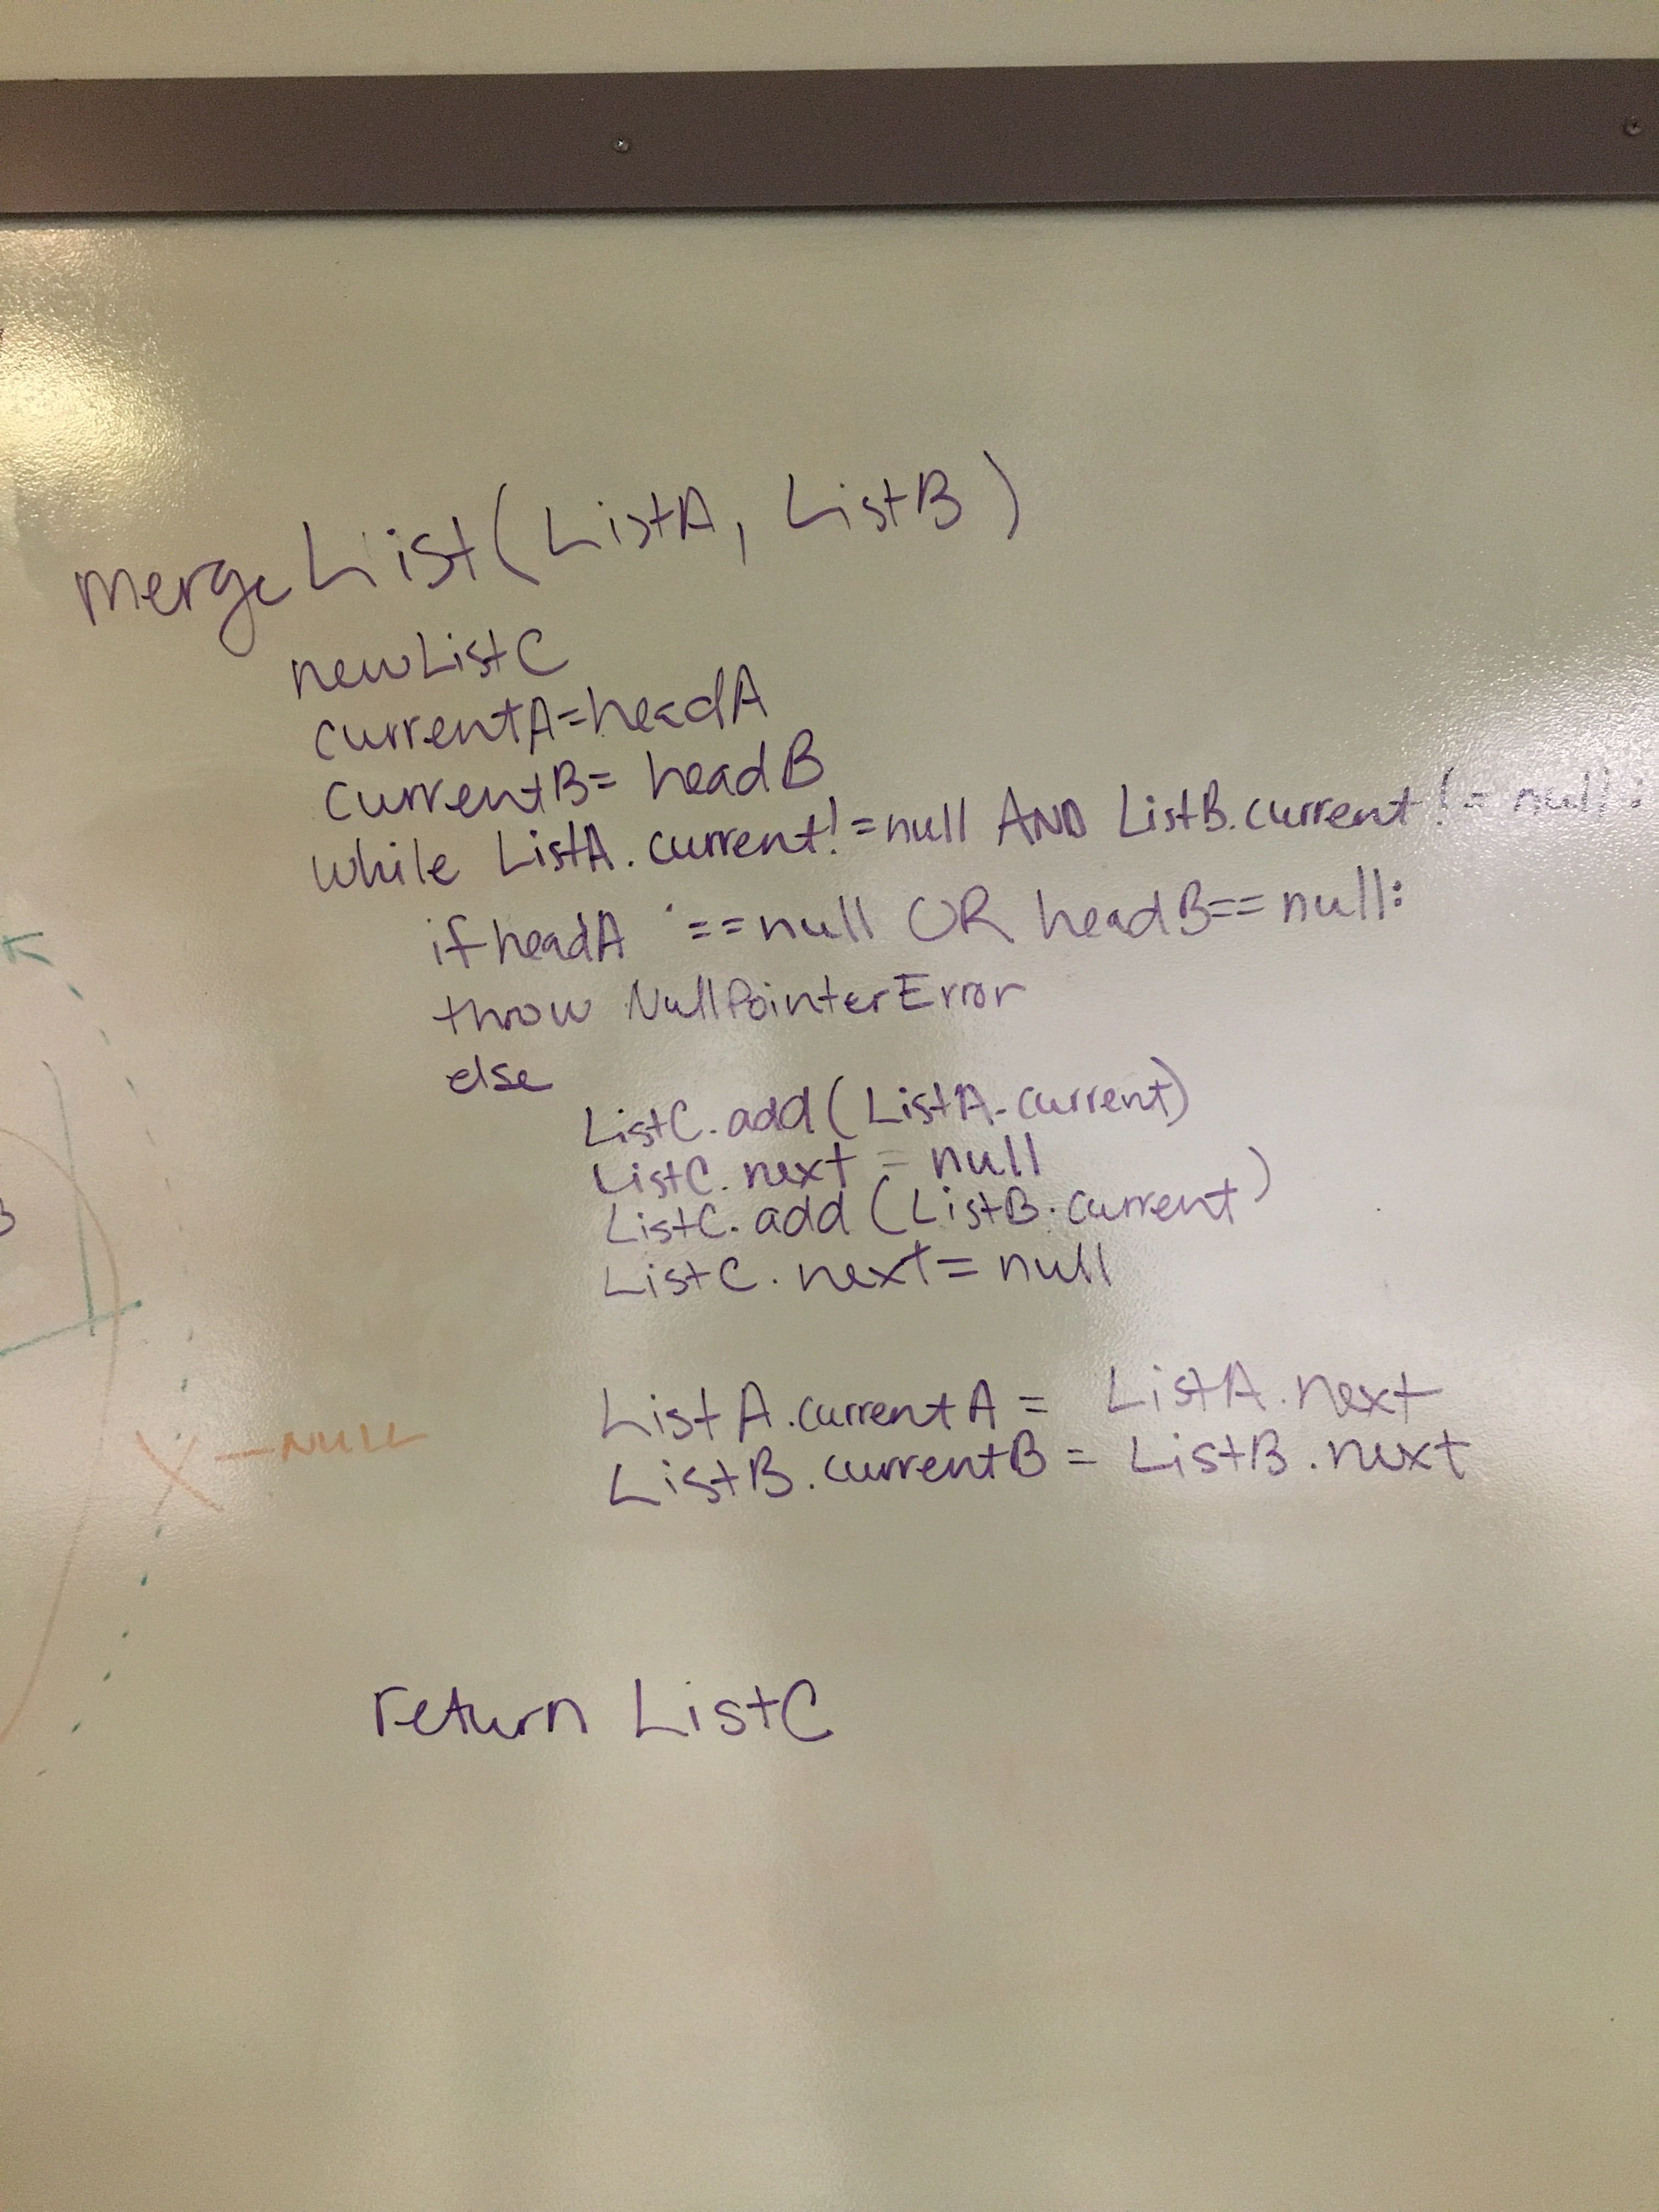 mergeList(ListA, ListB)
newListC
currentA=headA
currentB= headB
while ListA.current!=null AND ListB.current != null:
if headA ==null OR headB==null:
throw NullPointerError
else
ListC.add(ListA.current)
ListC.next = null
ListC.add(ListB.current)
ListC.next=null
ListA.currentA = ListA.next
ListB.currentB = ListB.next
X-NULL
return ListC